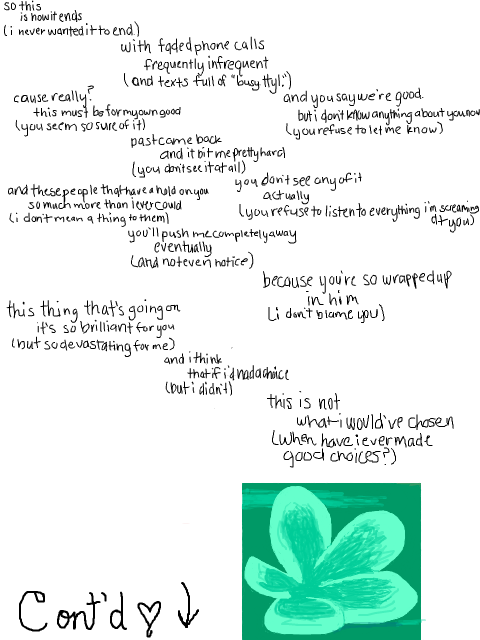 so this
is how it ends
(i never wanted it to end.)
with faded phone calls
frequently infrequent
(and texts full of "busy ttyl.")
cause really?
this must be for my own good
(you seem so sure of it)
and you say we're good.
but i don't know anything about you now
(you refuse to let me know)
past came back
and it bit me pretty hard
(you don't see it at all)
and these people that have a hold on you
so much more than i ever could
(i don't mean a thing to them)
you don't see any of it
actually
(you refuse to listen to everything i'm screaming
at you)
you'll push me completely away
eventually
(and not even notice)
because you're so wrapped up
in him
(i don't blame you)
this thing that's going on
it's so brilliant for you
(but so devastating for me)
and i think
that if i'd had a choice
(but i didn't)
this is not
what i would've chosen
(when have i ever made
good choices?)
Cont'd ♡ ↓